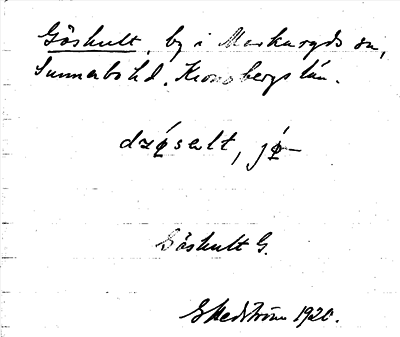 Göshult, by i Markaryds sn,
Sunnerbo hd. Kronobergs län.
dzǿsalt, jǿ-
Göshult G.
E Hedström 1920.